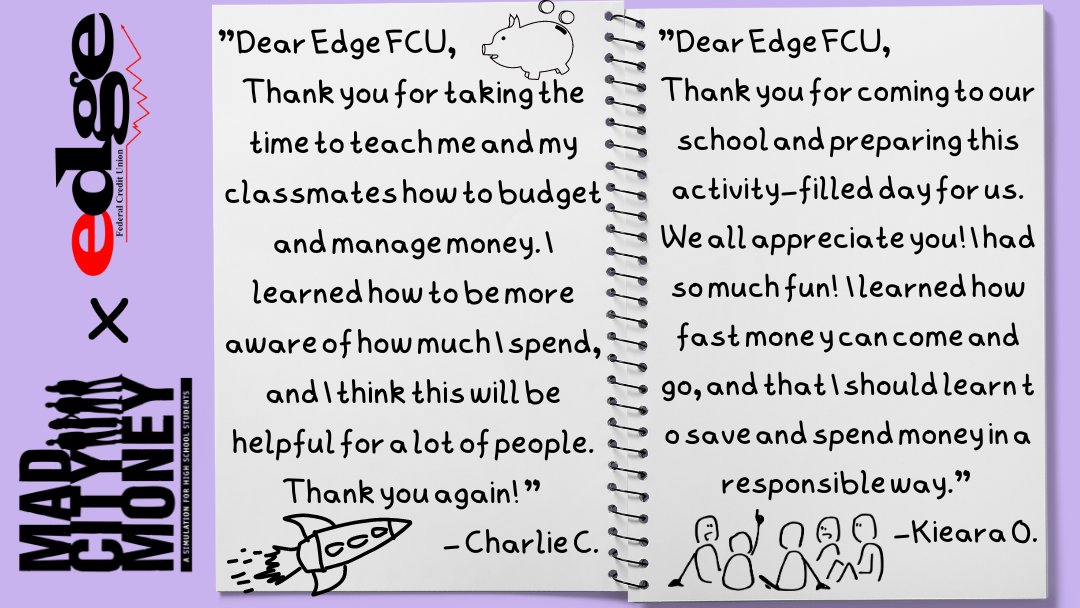 edge
Federal Credit Union
X
MAD
CITY
MONEY
A SIMULATION FOR HIGH SCHOOL STUDENTS
”Dear Edge FCU,
Thank you for taking the
time to teach me and my
classmates how to budget
and manage money. I
learned how to be more
aware of how much I spend,
and I think this will be
helpful for a lot of people.
Thank you again!”
- Charlie C.
”Dear Edge FCU,
Thank you for coming to our
school and preparing this
activity-filled day for us.
We all appreciate you! I had
so much fun! I learned how
fast money can come and
go, and that I should learn t
o save and spend money in a
responsible way.”
-Kieara O.